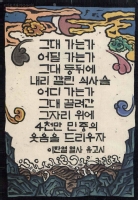 그대 가는가
어딜 가는가
그대 등뒤에
내리 깔린 쇠사슬을
어디 가는가
그대 끌려간
그자리 위에
4천만 민중의
웃음을 드리우자
이한열 열사